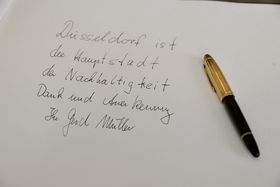 Düsseldorf ist
die Hauptstadt
der Nachhaltigkeit
Dank und Anerkennung
Ihr Gerd Müller